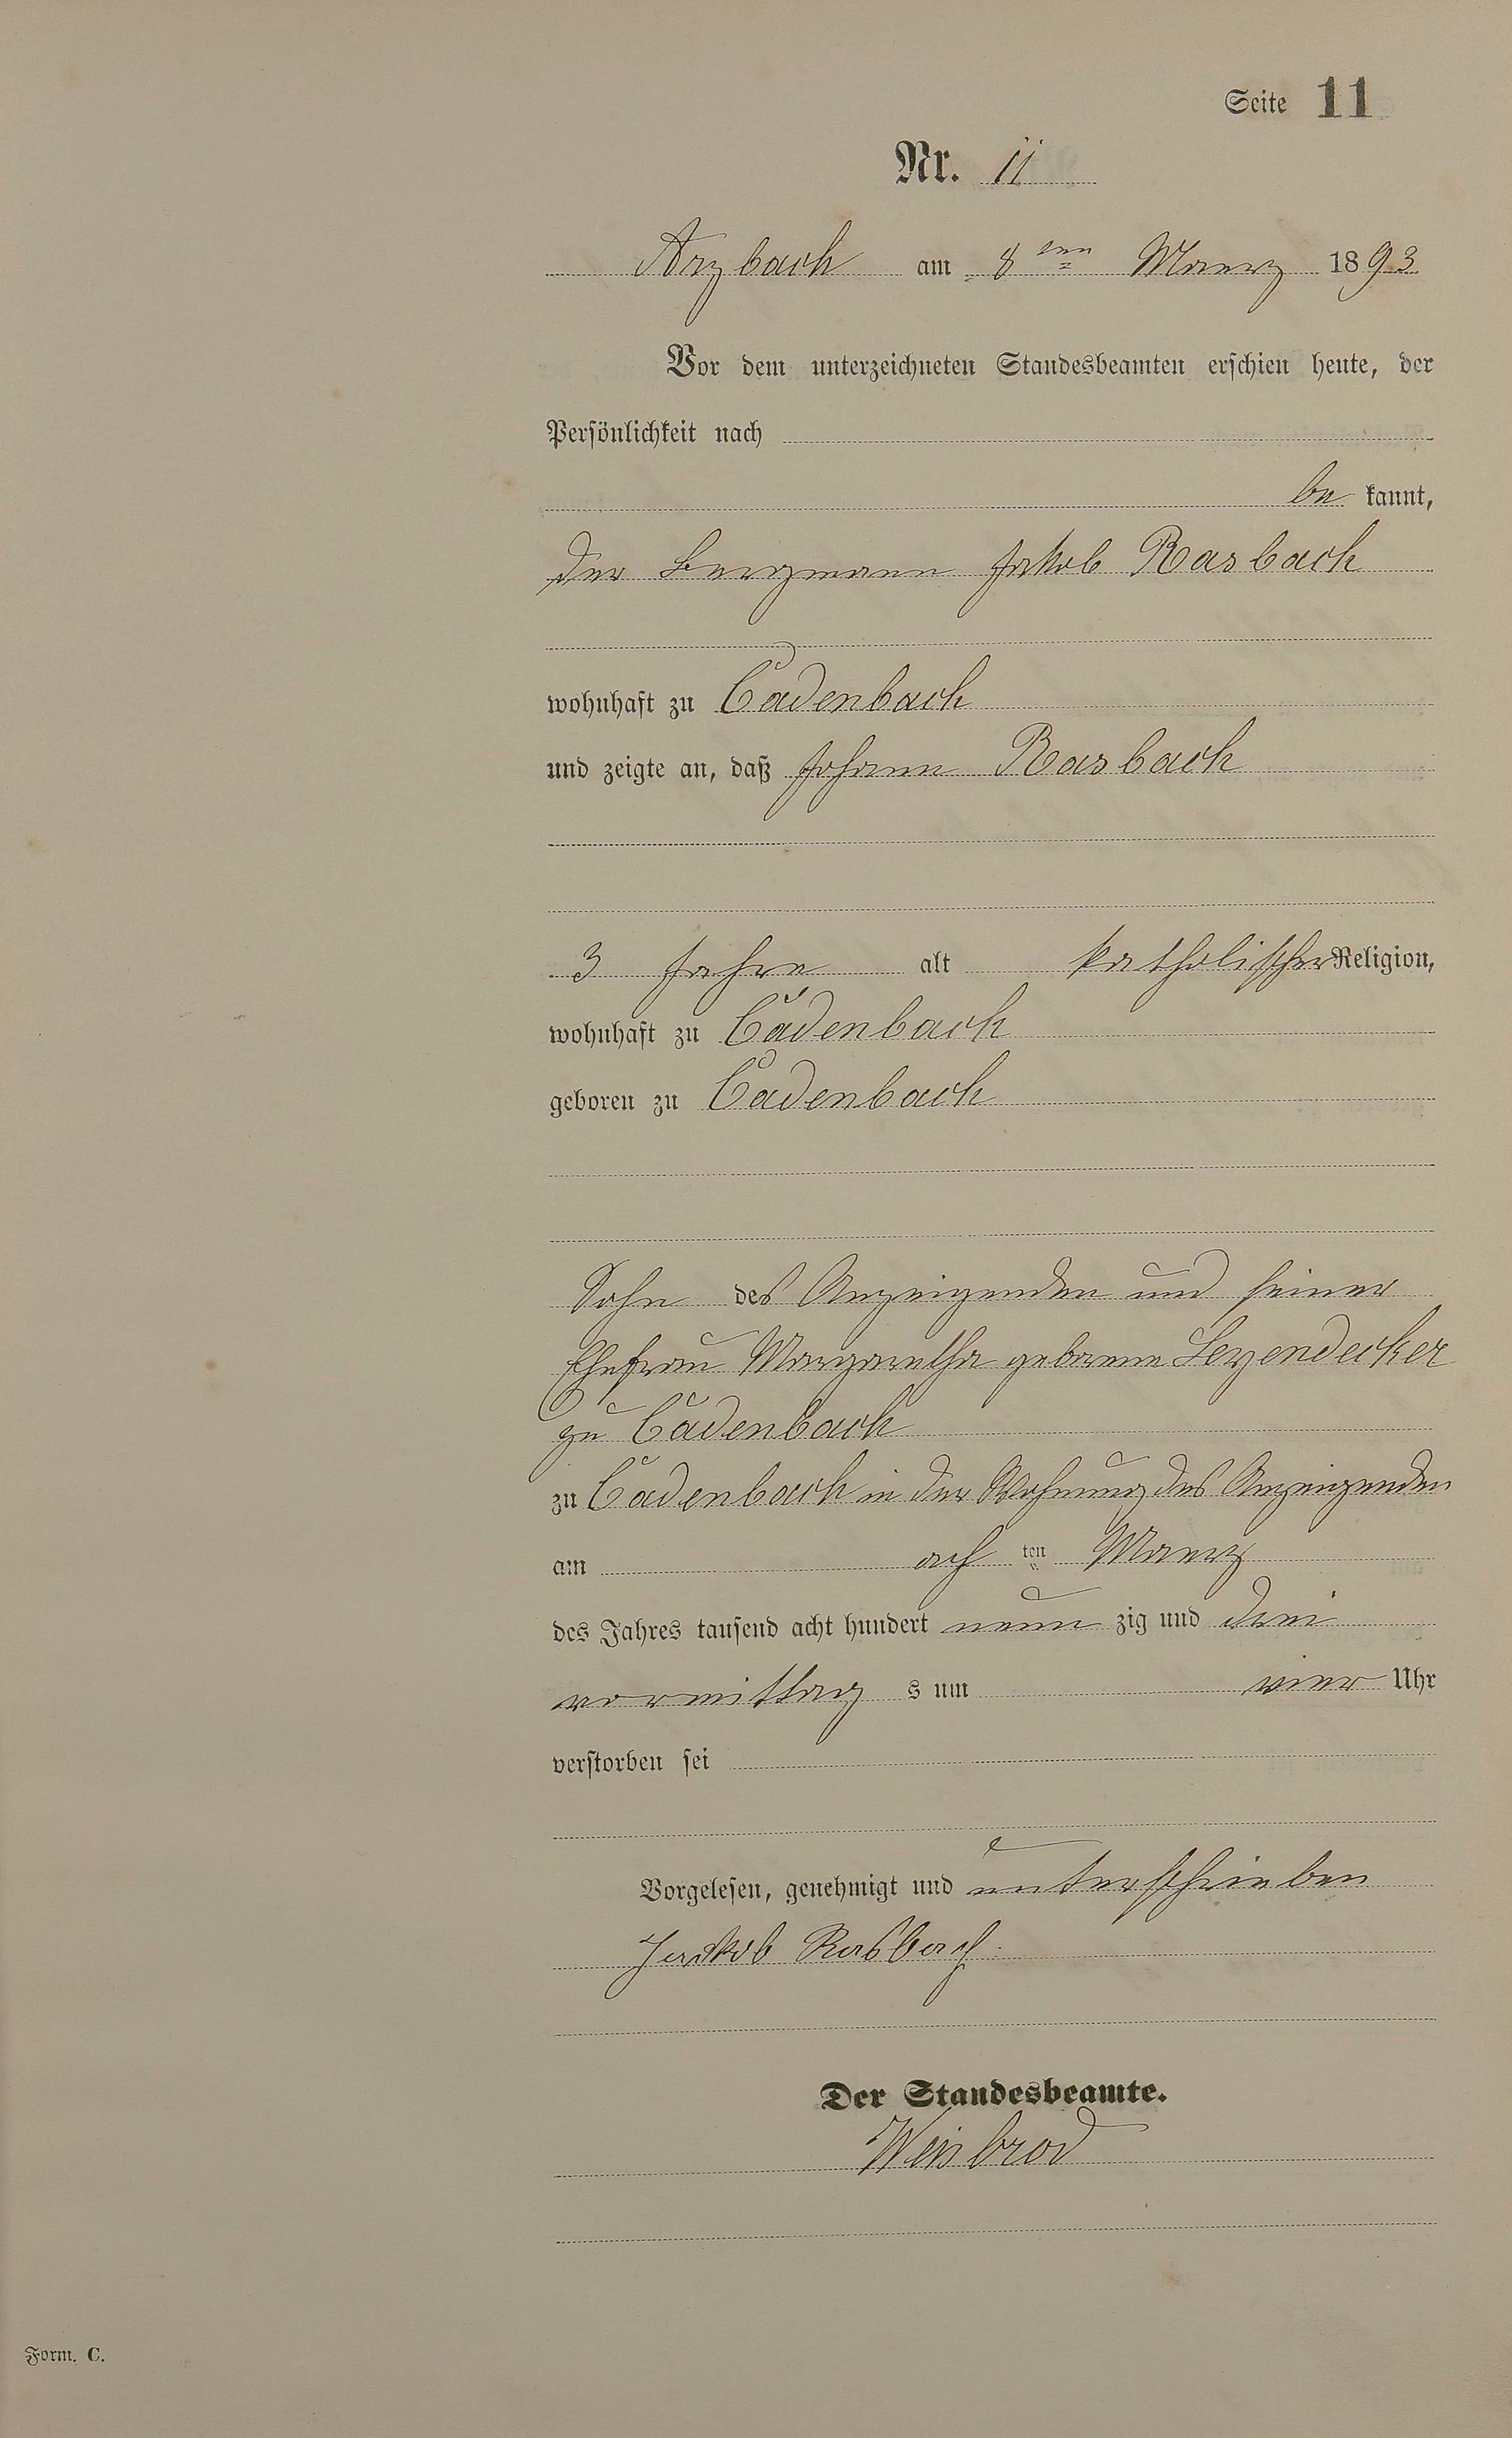 Seite 11
Nr. 11
Arzbach am 8ten Maerz 1893
Vor dem unterzeichneten Standesbeamten erschien heute, der
Persönlichkeit nach
be kannt,
der Bergmann Jakob Rasbach
wohnhaft zu Cadenbach
und zeigte an, daß Johann Rasbach
3 Jahre alt katholischer Religion,
wohnhaft zu Cadenbach
geboren zu Cadenbach
Sohn des Anzeigenden und seiner
Ehefrau Margaretha geborene Leyendecker
zu Cadenbach
zu Cadenbach in der Wohnung des Anzeigenden
am ach ten Maerz
des Jahres tausend acht hundert neun zig und drei
vormittag s um vier Uhr
verstorben sei
Vorgelesen, genehmigt und unterschrieben
Jackob Rasbach.
Der Standesbeamte.
Weisbrod
Form. C.